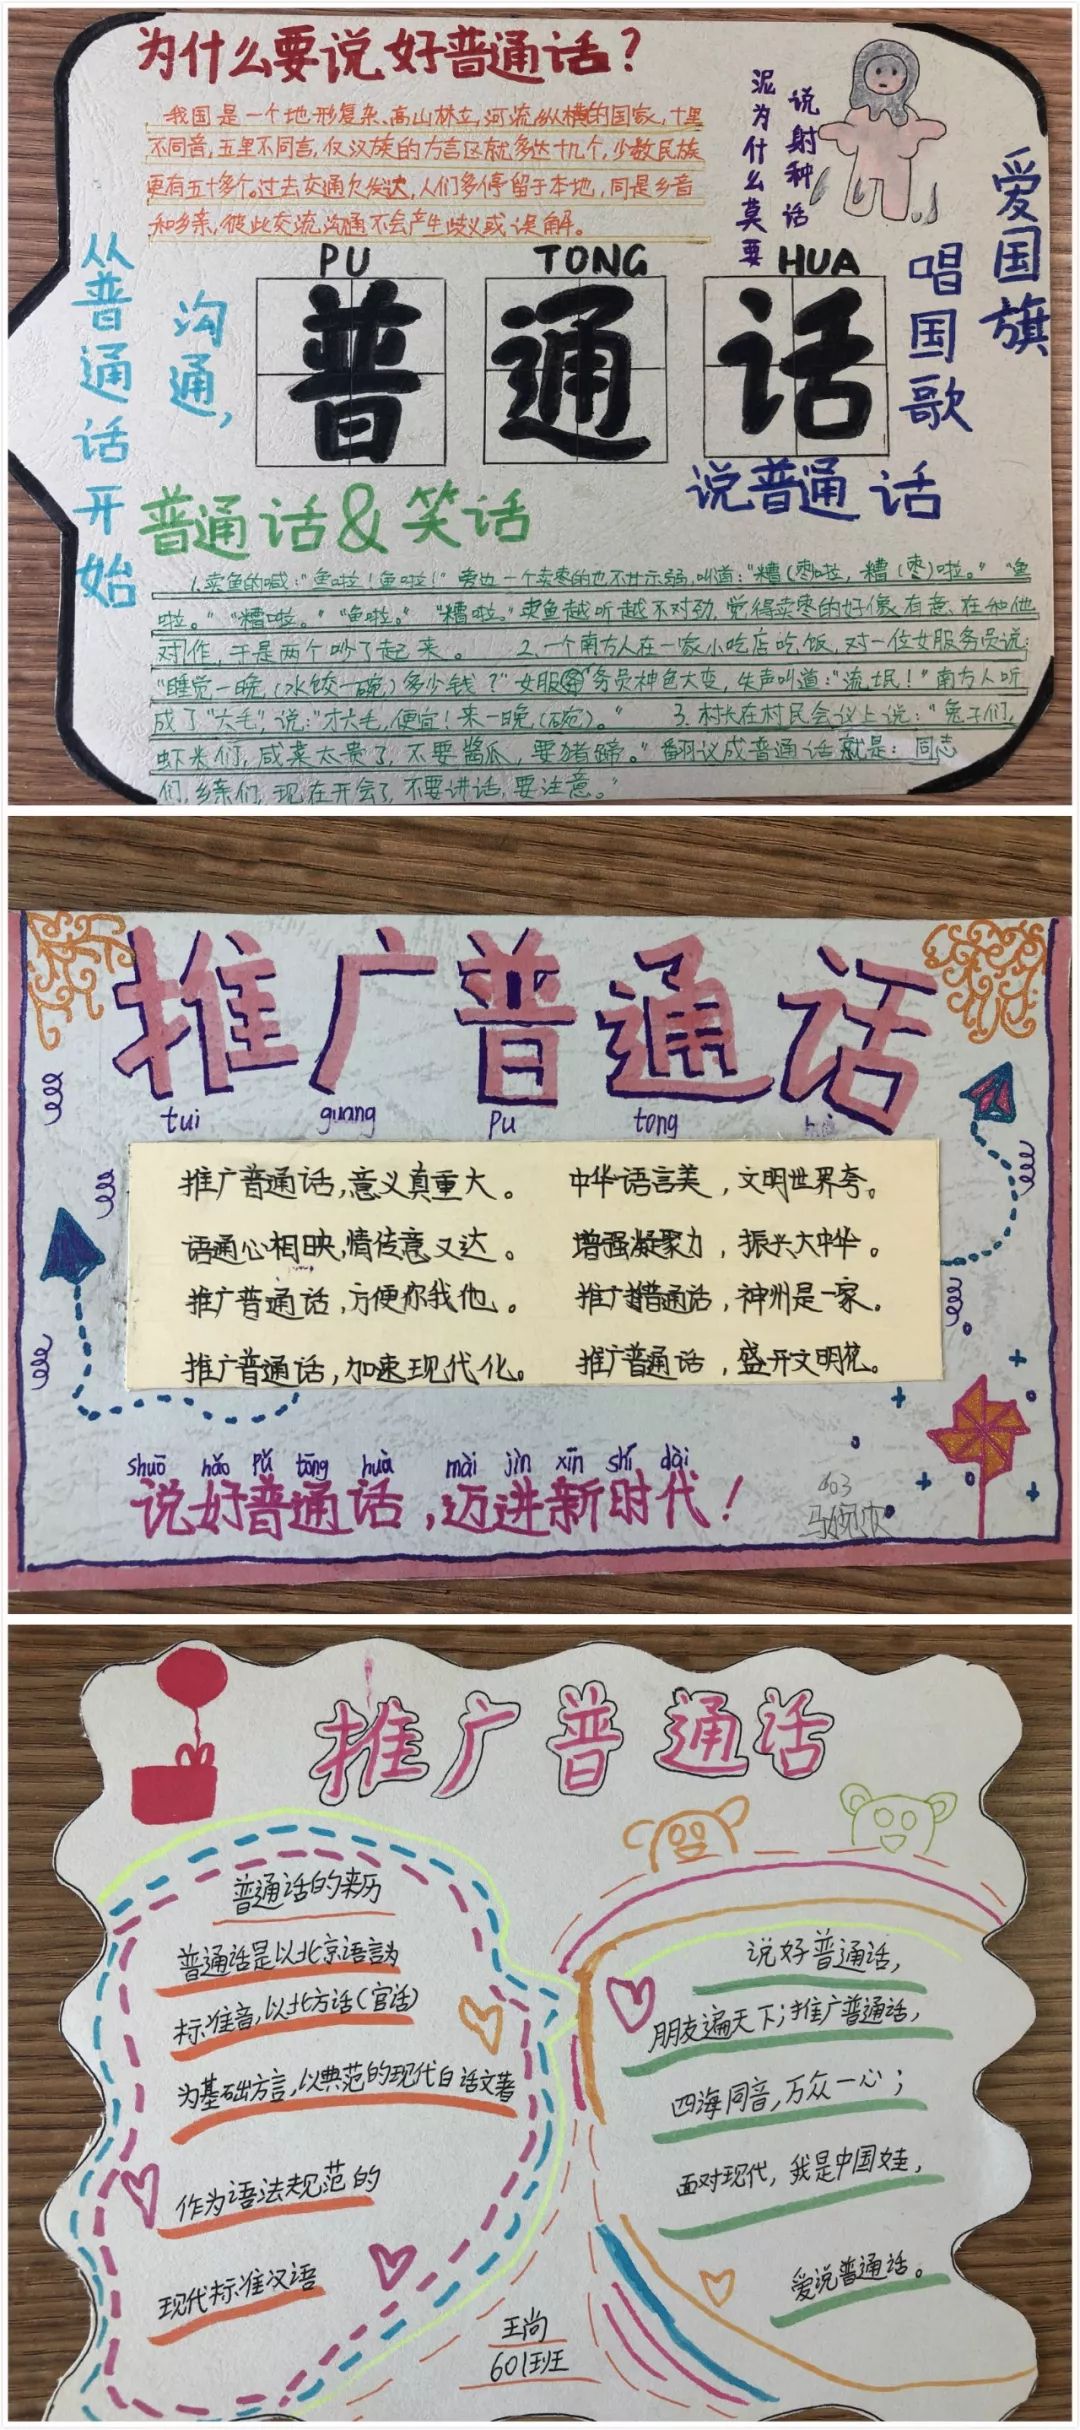 为什么要说好普通话？
我国是一个地形复杂、高山林立,河流纵横的国家,十里
不同音,五里不同言,仅汉族的方言区就多达十几个,少数民族
更有五十多个。过去交通欠发达,人们多停留于本地,同是乡音
和乡亲,彼此交流沟通不会产生歧义或误解。
说射种话
泥为什么莫要
爱国旗
唱国歌
说普通话
沟通,
从普通话开始
PU TONG HUA
普通话
普通话&笑话
1.卖鱼的喊:“鱼啦！鱼啦！”旁边一个卖枣的也不甘示弱,叫道:“糟(枣)啦,糟(枣)啦。”“鱼
啦。”“糟啦。”“鱼啦。”“糟啦。”卖鱼越听越不对劲,觉得卖枣的好像有意在和他
对作,于是两个吵了起来。 2.一个南方人在一家小吃店吃饭,对一位女服务员说:
“睡觉一晚(水饺一碗)多少钱?”女服务员神色大变,失声叫道:“流氓！”南方人听
成了“六毛”,说:“才六毛,便宜！来一晚(碗)。” 3.村长在村民会议上说:“兔子们,
虾米们,咸菜太贵了,不要酱瓜,要猪蹄。”翻议成普通话就是:同志
们,乡亲们,现在开会了,不要讲话,要注意。”
推广普通话
tui guang pu tong hua
推广普通话,意义真重大。 中华语言美,文明世界夸。
语通心相映,情传意又达。 增强凝聚力,振兴大中华。
推广普通话,方便你我他。 推广普通话,神州是一家。
推广普通话,加速现代化。 推广普通话,盛开文明花。
shuō hǎo pǔ tōng huà mài jìn xīn shí dài
说好普通话,迈进新时代！
603
推广普通话
普通话的来历
普通话是以北京语言为
标准音,以北方话(官话)
为基础方言,以典范的现代白话文著
作为语法规范的
现代标准汉语
说好普通话,
朋友遍天下;推广普通话,
四海同音,万众一心;
面对现代,我是中国娃,
爱说普通话。
王尚
601班